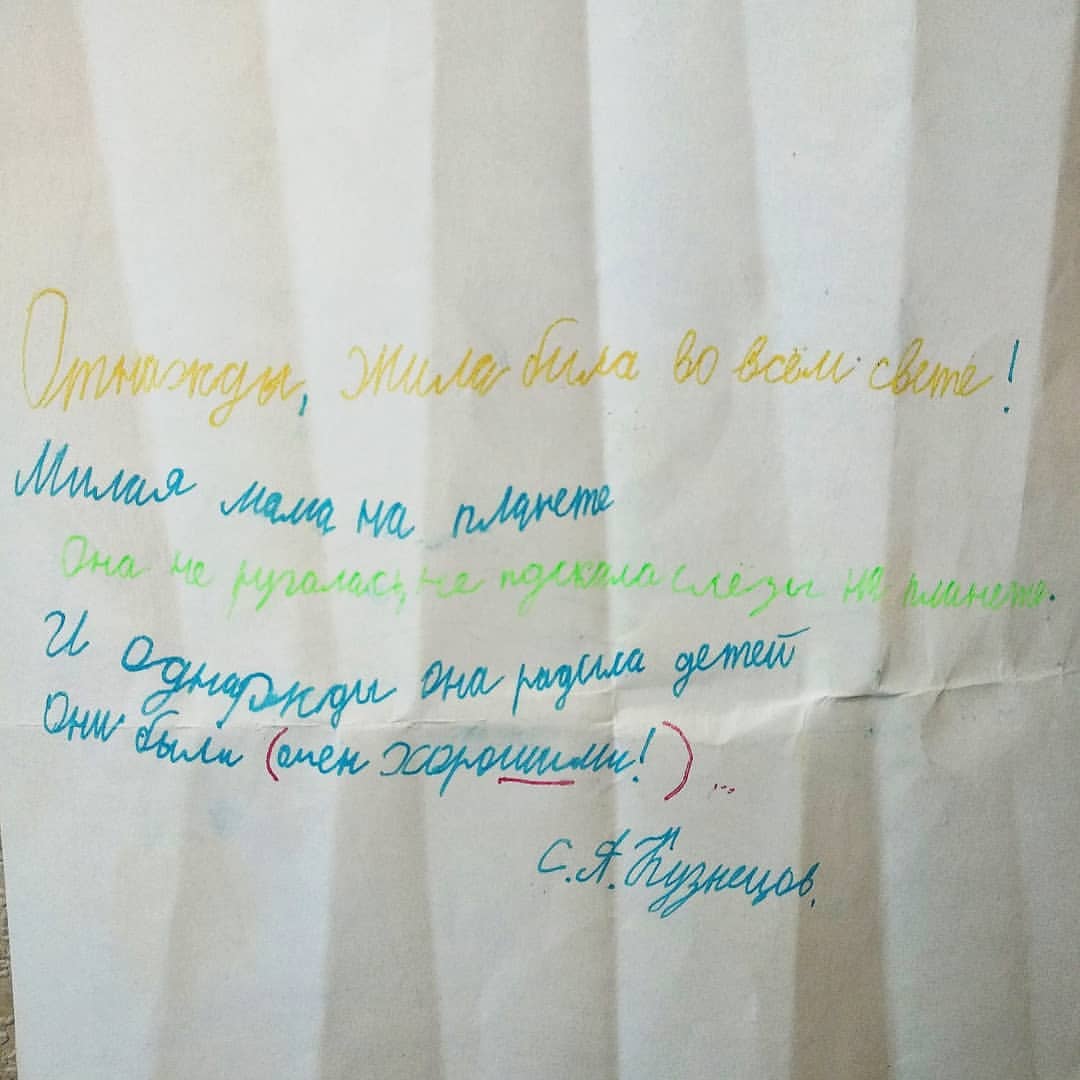 Отнажды, жила била во всём свете!
Милая мама на планете
Она не ругалась, не пускала слёзы на планете.
И однажды она радила детей
Они были (очен хорошими!) ...
С.А. Кузнецов.